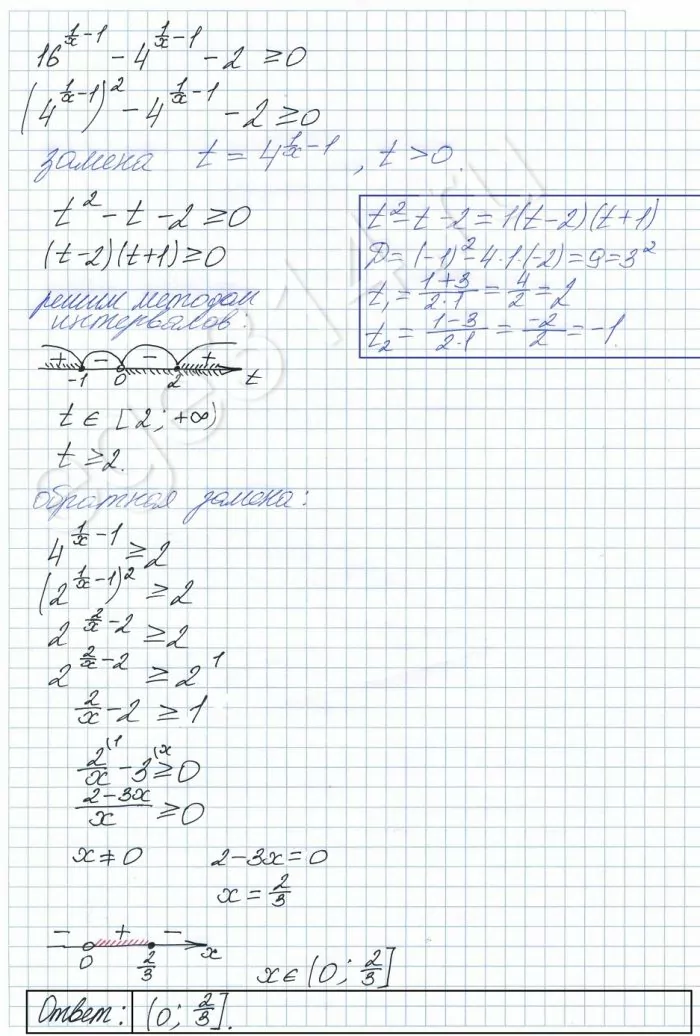 16^(1/x-1) - 4^(1/x-1) - 2 ≥ 0
(4^(1/x-1))^2 - 4^(1/x-1) - 2 ≥ 0
замена t = 4^(1/x-1), t > 0.
t^2 - t - 2 ≥ 0
(t-2)(t+1) ≥ 0
t^2 - t - 2 = 1(t-2)(t+1)
D = (-1)^2 - 4·1·(-2) = 9 = 3^2
t₁ = (1+3)/(2·1) = 4/2 = 2
t₂ = (1-3)/(2·1) = -2/2 = -1
решим методом
интервалов:
+ - - +
-1 0 2 t
t ∈ [2; +∞)
t ≥ 2.
обратная замена:
4^(1/x-1) ≥ 2
(2^(1/x-1))^2 ≥ 2
2^(2/x-2) ≥ 2
2^(2/x-2) ≥ 2^1
2/x - 2 ≥ 1
2/x (1 - 3 (x ≥ 0
(2-3x)/x ≥ 0
x ≠ 0 2-3x = 0
x = 2/3
- + -
0 2/3 x
x ∈ (0; 2/3]
Ответ: (0; 2/3].
ege314.ru